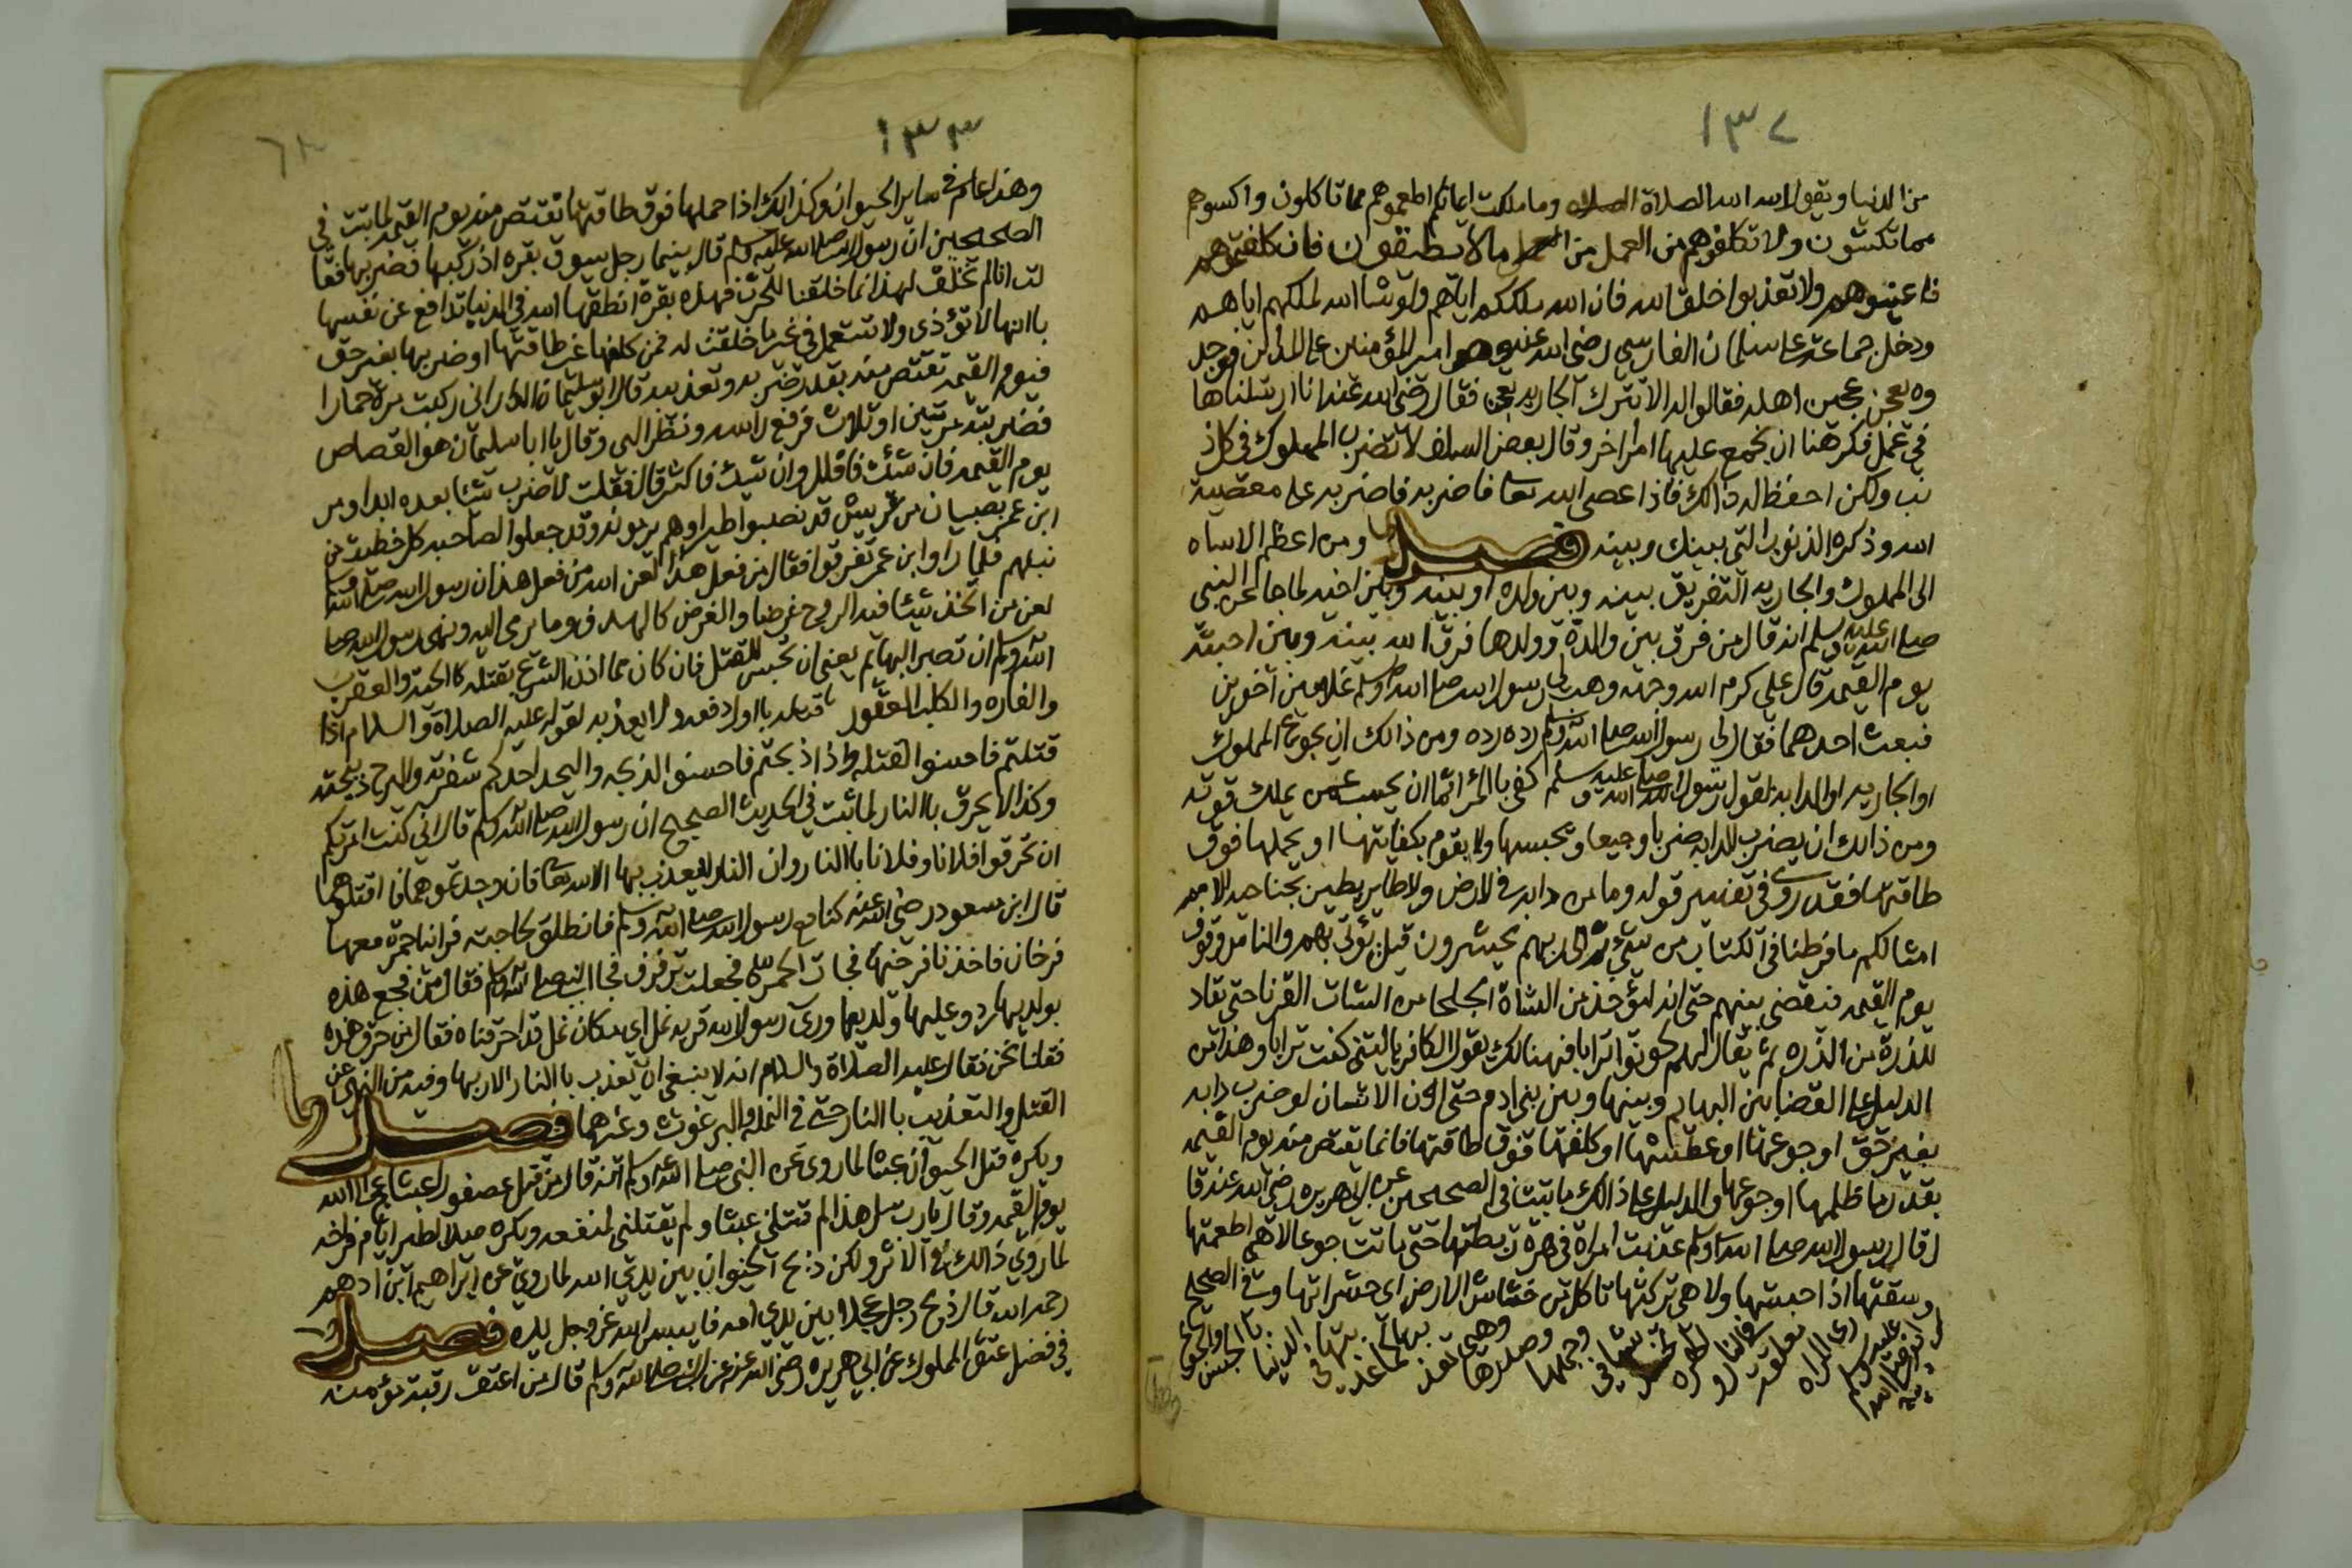 ١٣٢
من الدنيا ويقول الله الله الصلاة الصلاه وما ملكت ايمانكم اطعموهم مما تاكلون واكسوهم
مما تكسون ولا تكلفوهم من العمل من العمل ما لا يطيقون فان كلفتموهم
فاعينوهم ولا تعذبوا خلق الله فان الله ملككم اياهم ولو شا الله لملكهم اياهم
ودخل جماعة على سلمان الفارسي رضي الله عنه وهو امير المؤمنين على المداين فوجد
وه يعجن عجين اهله فقالوا له الا تترك الجاريه تعجن فقال رضي الله عنه انا ارسلناها
في عمل فكرهنا ان نجمع عليها امرا اخر وقال بعض السلف لا تضرب المملوك في كل ذ
نب ولكن احفظ له ذالك فاذا عصى الله تعا فاضربه فاضربه على معصية
الله وذكره الذنوب التي بينك وبينه فصل ومن اعظم الاساه
الى المملوك والجاريه التفريق بينه وبين ولده او بينه وبين اخيه لما جا عن النبي
صلى الله عليه وسلم انه قال من فرق بين والدة وولدها فرق الله بينه وبين احبته
يوم القيمه قال علي كرم الله وجهه وهب لي رسول الله صلى الله وسلم غلامين اخوين
فبعت احدهما فقال لي رسول الله صلى الله وسلم رده رده ومن ذالك ان يجوع المملوك
او الجاريه او الدابه لقول رسول الله صلى الله عليه وسلم كفى بالمرا اثما ان يحبس عمن يملك قوته
ومن ذالك ان يضرب الدابه ضربا وجيعا ويحبسها ولا يقوم بكفايتها او يحملها فوق
طاقتها فقد روي في تفسير قوله وما من دابه في لارض ولا طاير يطير بجناحيه الا امم
امثالكم ما فرطنا في الكتاب من شئ ثم الى ربهم يحشرون قيل يؤتى بهم والناس وقوف
يوم القيمه فيقضي بينهم حتى انه ليؤخذ من الشاة الجلحا من الشات القرنا حتى يقاد
للذرة من الذره ثم يقال لهم كونوا ترابا فهنالك يقول الكافر ياليتني كنت ترابا وهذا من
الدليل على القضا بين البهايم وبينها وبين بني ادم حتى ان الانسان لو ضرب دابه
بغير حق او جوعها او عطشها او كلفها فوق طاقتها فانها تقتص منه يوم القيمه
بقدر ما ظلمها او جوعها والدليل على ذالك ما ثبت في الصحيحين عن ابي هريره رضي الله عنه قا
ل قال رسول الله صلى الله وسلم عذبت امراة في هرة ربطتها حتى ماتت جوعا لا هي اطعمتها
وسقتها اذ حبستها ولا هي تركتها تاكل من خشاش الارض اي حشراتها وفي الصحيح
١٣٣
وهذا عام في ساير الحيوان وكذالك اذا حملها فوق طاقتها تقتص منه يوم القيمه لما ثبت في
الصحيحين ان رسول الله صلى الله عليه وسلم قال بينما رجل يسوق بقره اذ ركبها فضربها فقا
لت انا لم نخلق لهذا انما خلقنا للحرث فهذه بقرة انطقها الله في الدنيا تدافع عن نفسها
باانها لا تؤذى ولا تستعمل في غير ما خلقت له فمن كلفها غير طاقتها او ضربها بغير حق
فيوم القيمه تقتص منه بقدر ضربه وتعذيبه قال ابو سليمان الداراني ركبت مرة حمارا
فضربته مرتين او ثلاث فرفع راسه ونظر الي وقال يا ابا سليمان هو القصاص
يوم القيمه فان شئت فاقلل وان شيت فاكثر قال فقلت لا ضرب شئا بعده ابدا ومر
ابن عمر بصبيان من قريش قد نصبوا طيرا وهم يرمونه وقد جعلوا لصاحبه كل خطيئة من
نبلهم فلما راوا ابن عمر تفرقوا فقال من فعل هذا لعن الله من فعل هذا ان رسول الله صلى الله
لعن من اتخذ شيئا فيه الروح غرضا والغرض كالهدف وما يرمى اليه ونهى رسول الله صلى
الله وسلم ان تصبر البهايم يعني ان تحبس للقتل فان كان مما اذن الشرع بقتله كالحية والعقرب
والفاره والكلب العقور قتله بااول دفعه ولا يعذبه لقوله عليه الصلاة والسلام اذا
قتلتم فاحسنوا القتله واذا ذبحتم فاحسنوا الذبحه واليحد احدكم شفرته واليرح ذبيحته
وكذا لا يحرق باالنار لما ثبت في الحديث الصحيح ان رسول الله صلى الله وسلم قال اني كنت امرتكم
ان تحرقوا فلانا وفلانا باالنار وان النار لايعذب بها الا الله تعا فان وجدتموهما فاقتلوهما
قال ابن مسعود رضي الله عنه كنا مع رسول الله صلى الله وسلم فانطلق لحاجته فراينا حمرة معها
فرخان فاخذنا فرخيها فجات الحمرة فجعلت ترفرف فجا النبي صلى الله وسلم فقال من فجع هذه
بولديها ردو عليها ولديها وراى رسول الله قرية نمل اي مكان نمل قد احرقناه فقال من حرق هذه
فقلنا نحن فقال عليه الصلاة والسلام انه لا ينبغي ان يعذب باالنار الا ربها وفيه من النهي عن
القتل والتعذيب باالنار حتى في النمله والبرغوث وغيرهما فصل
ويكره قتل الحيوان عبثا لما روي عن النبي صلى الله وسلم انه قال من قتل عصفورا عبثا عج الى الله
يوم القيمه وقال يارب سل هذا لم قتلني عبثا ولم يقتلني لمنفعه ويكره صيد الطير ايام فراخه
لما روي ذالك في الاثر ولكن ذبح الحيوان بين يدي الله لما روي عن ابراهيم ابن ادهم
رحمه الله قال ذبح رجل عجلا بين يدي امه فايبس الله عز وجل يده فصل
في فضل عتق المملوك عن ابي هريره رضي الله عنه عن النبي صلى الله وسلم قال من اعتق رقبة مؤمنه